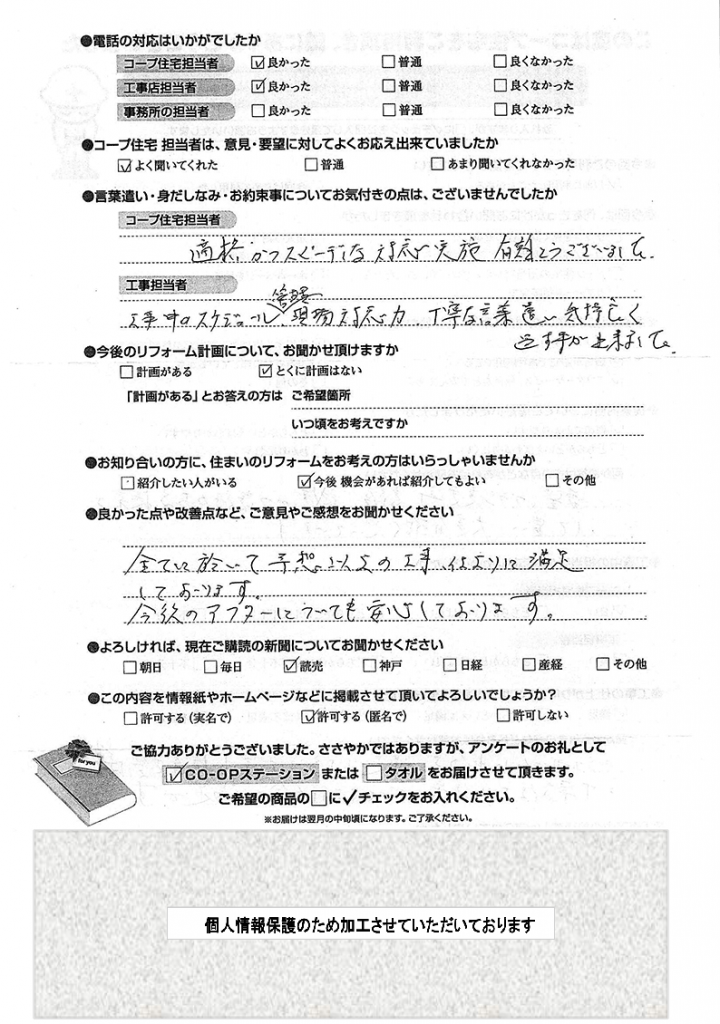 ●電話の対応はいかがでしたか
コープ住宅担当者 ☑良かった □普通 □良くなかった
工事店担当者 ☑良かった □普通 □良くなかった
事務所の担当者 □良かった □普通 □良くなかった
●コープ住宅 担当者は、意見・要望に対してよくお応え出来ていましたか
☑よく聞いてくれた □普通 □あまり聞いてくれなかった
●言葉遣い・身だしなみ・お約束事についてお気付きの点は、ございませんでしたか
コープ住宅担当者
適格かつスピーデな対応実施 有難とうございました。
工事担当者
管理
工事中のスケジュール、現場対応力、丁寧な言葉遣い気持良く
過す事が出来ました。
●今後のリフォーム計画について、お聞かせ頂けますか
□計画がある ☑とくに計画はない
「計画がある」とお答えの方は ご希望箇所
いつ頃をお考えですか
●お知り合いの方に、住まいのリフォームをお考えの方はいらっしゃいませんか
□紹介したい人がいる ☑今後 機会があれば紹介してもよい □その他
●良かった点や改善点など、ご意見やご感想をお聞かせください
全てに於いて予想以上の工事仕上りに満足
しております。
今後のアフターについても安心しております。
●よろしければ、現在ご購読の新聞についてお聞かせください
□朝日 □毎日 ☑読売 □神戸 □日経 □産経 □その他
●この内容を情報紙やホームページなどに掲載させて頂いてよろしいでしょうか？
□許可する（実名で） ☑許可する（匿名で） □許可しない
for you
ご協力ありがとうございました。ささやかではありますが、アンケートのお礼として
☑CO-OPステーション または □タオル をお届けさせて頂きます。
ご希望の商品の□に✓チェックをお入れください。
※お届けは翌月の中旬頃になります。ご了承ください。
個人情報保護のため加工させていただいております